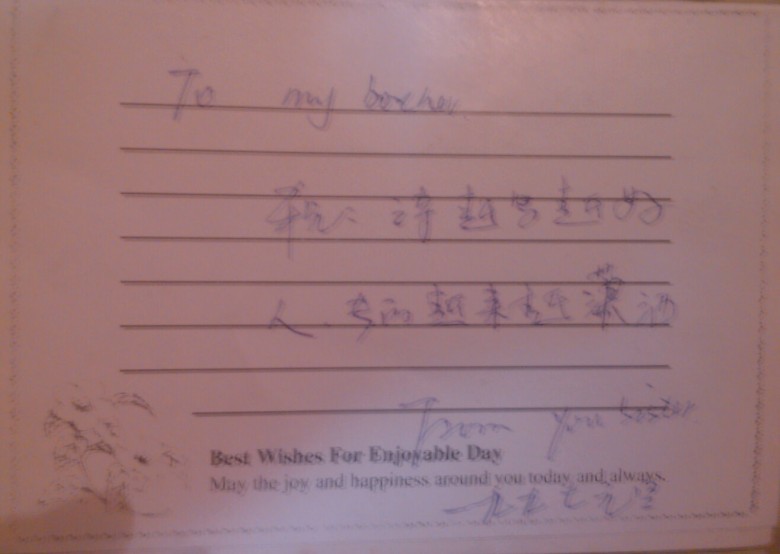 To my
诗越写越好
人、长的越来越潇洒
From sister
Best Wishes For Enjoyable Day
May the joy and happiness around you today and always.
元旦